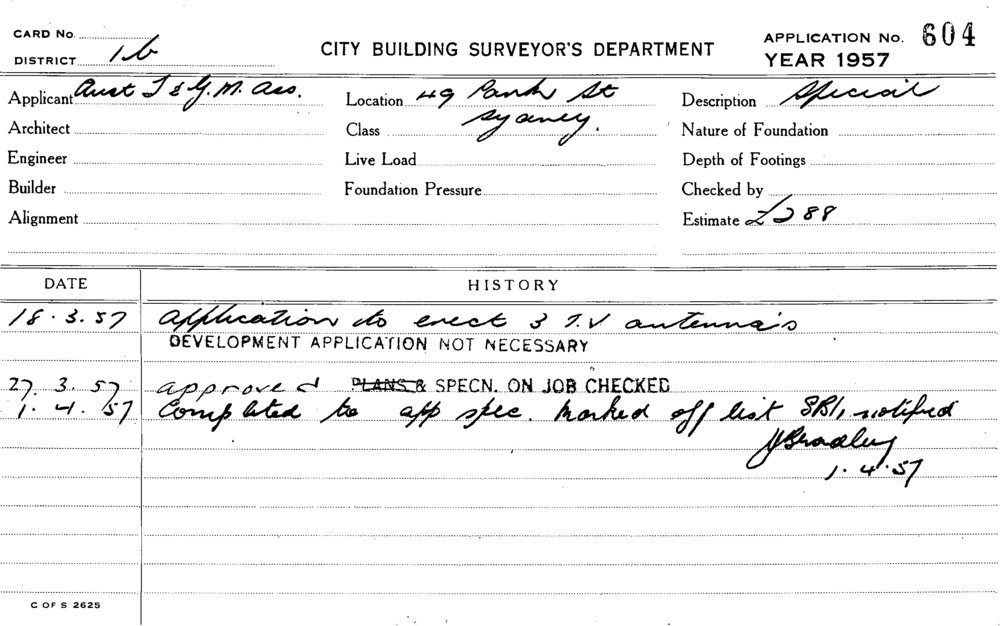 CARD No.
DISTRICT 1b
CITY BUILDING SURVEYOR'S DEPARTMENT
APPLICATION No. 604
YEAR 1957
Applicant Aust T & G. M. Ass.
Location 49 Park St
Sydney.
Description Special
Architect
Class
Nature of Foundation
Engineer
Live Load
Depth of Footings
Builder
Foundation Pressure
Checked by
Alignment
Estimate £288
DATE
HISTORY
18.3.57 Application to erect 3 T.V antenna's
DEVELOPMENT APPLICATION NOT NECESSARY
27.3.57 approved PLANS & SPECN. ON JOB CHECKED
1.4.57 Completed to app spec. Marked off list SBI, notified
J Bradley
1.4.57
C OF S 2625